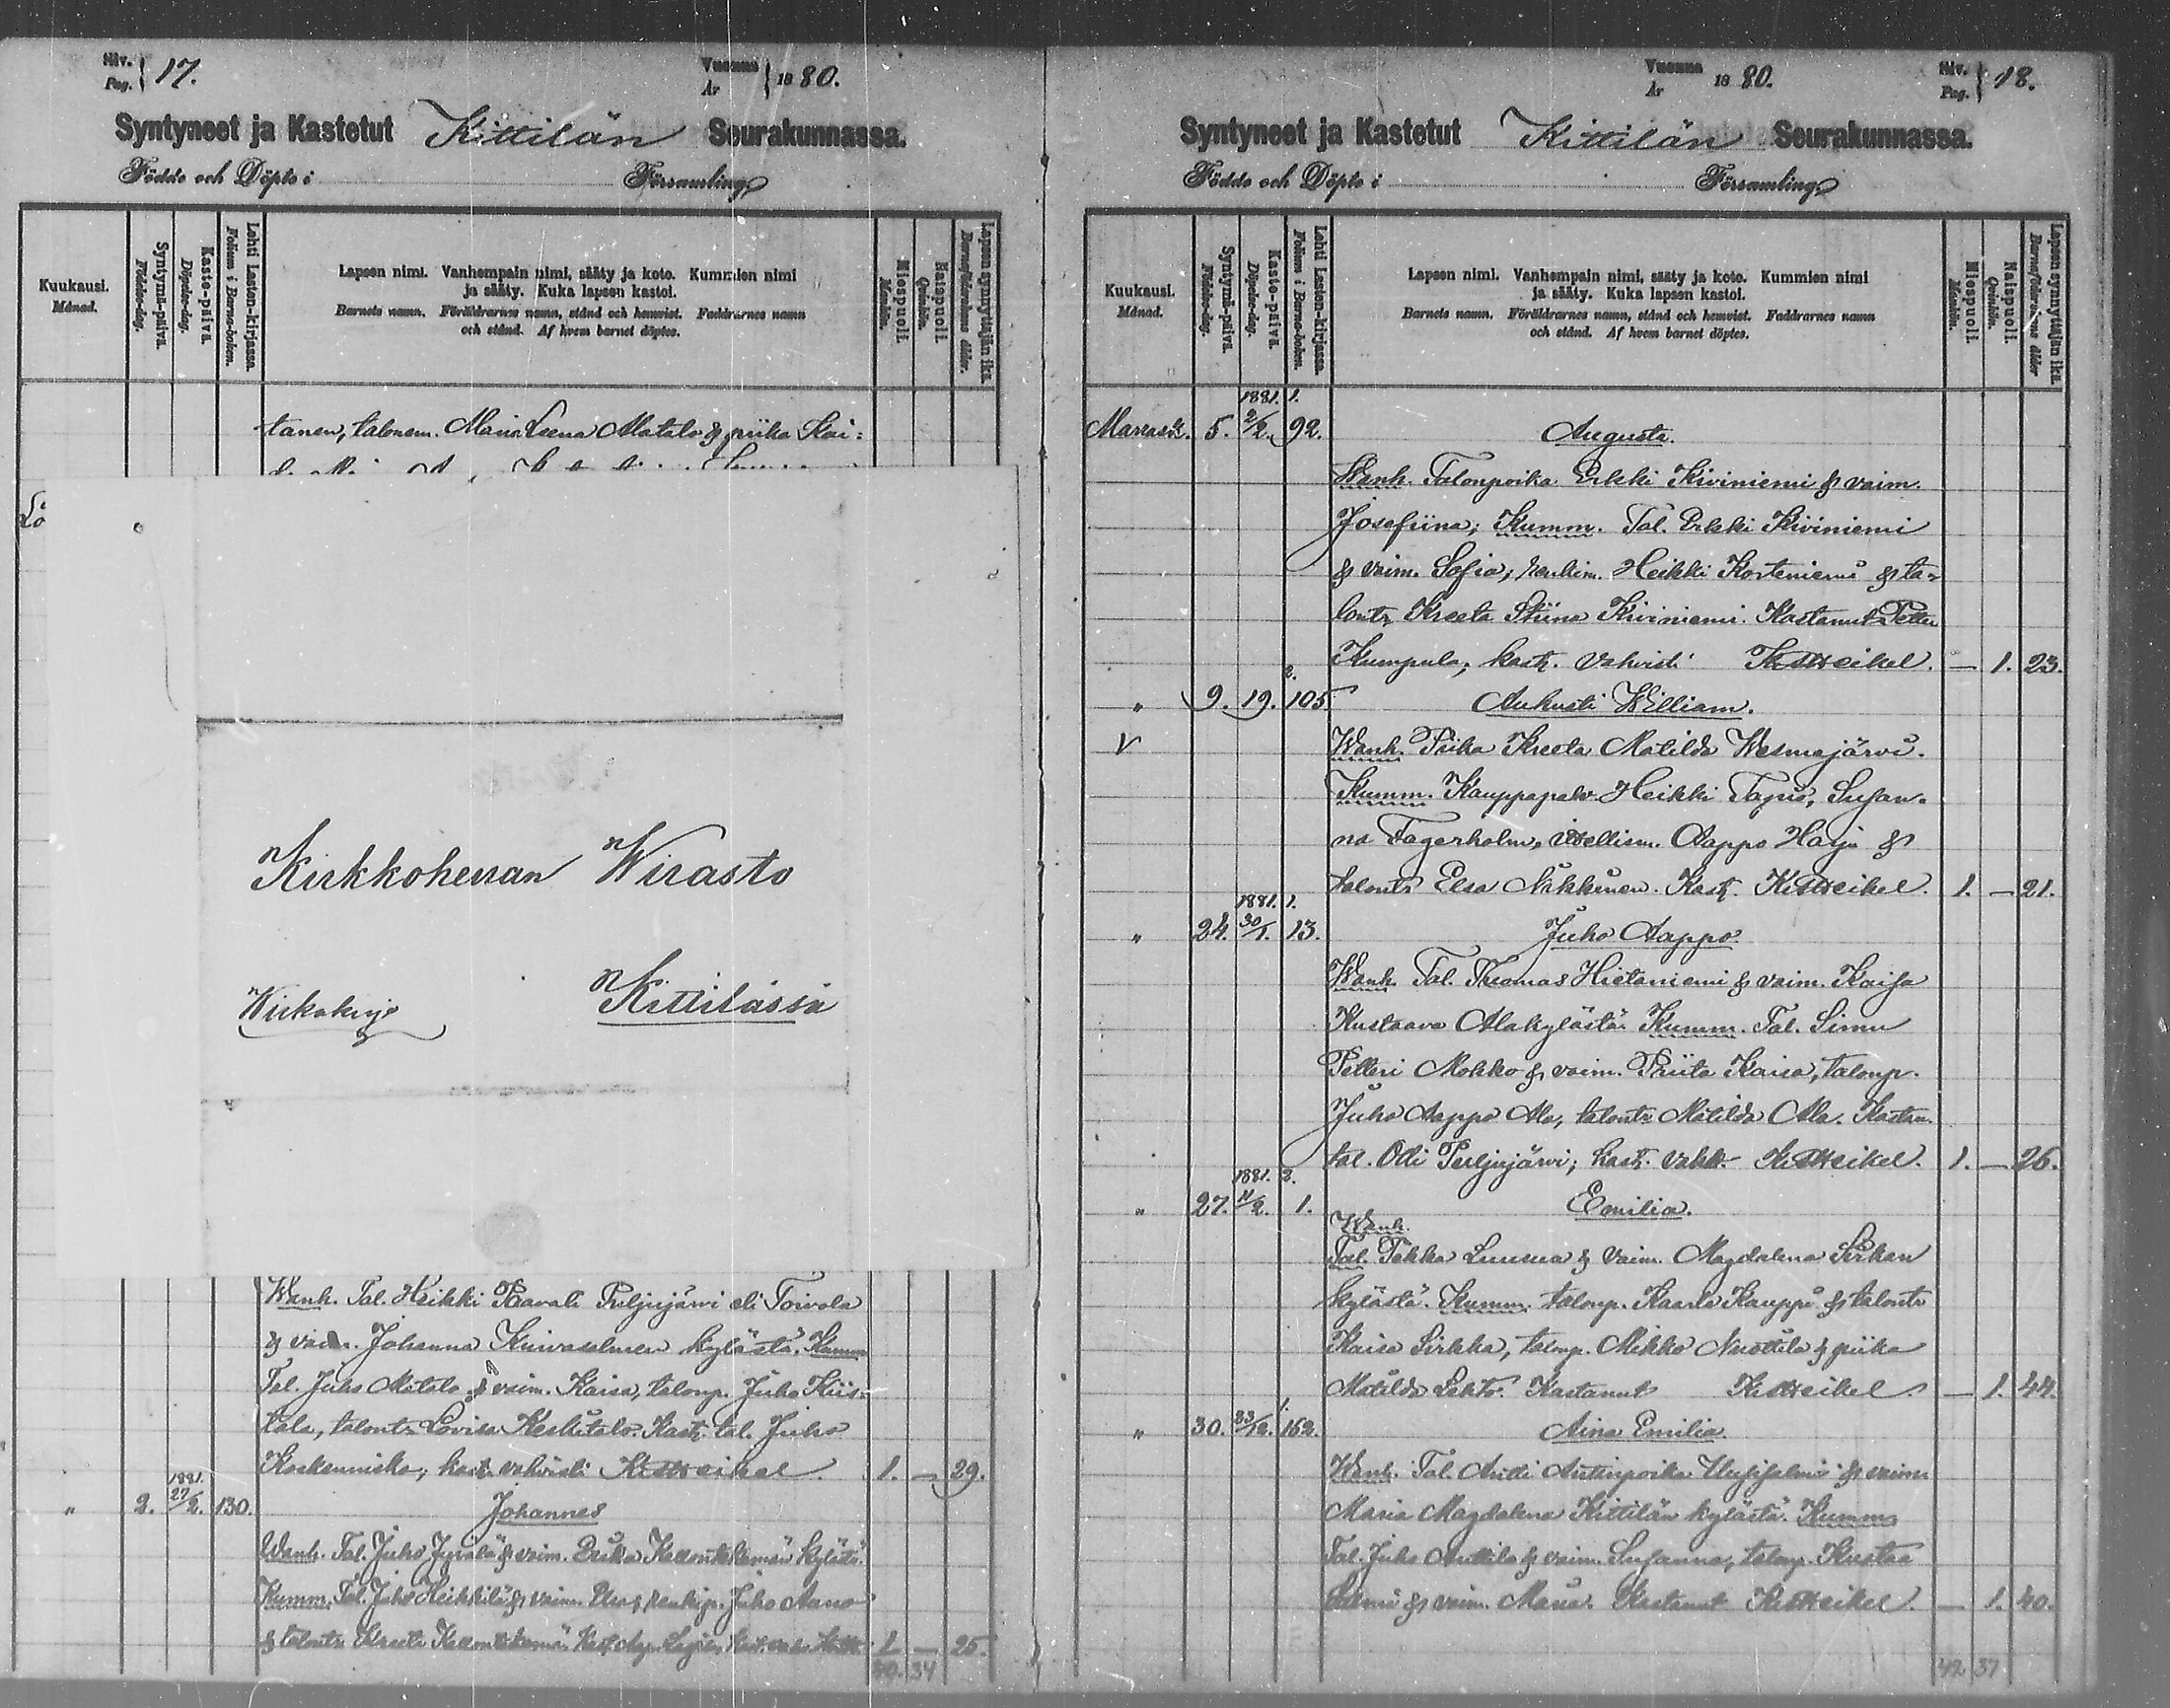 Siv. Pag. } 17.
Vuonna År } 1880.
Syntyneet ja Kastetut Kittilän Seurakunnassa.
Födde och Döpte i Församling
Kuukausi. Månad.
Syntymä-päivä. Födelse-dag.
Kaste-päivä. Döpelse-dag.
Lehti Lasten-kirjassa. Folium i Barna-boken.
Lapsen nimi. Vanhempain nimi, sääty ja koto. Kummien nimi
ja sääty. Kuka lapsen kastoi.
Barnets namn. Föräldrarnes namn, stånd och hemvist. Faddrarnes namn
och stånd. Af hvem barnet döptes.
Miespuoli. Mankön.
Naispuoli. Qvinkön.
Lapsen synnyttäjän ikä. Barnaföderskans ålder.
tanen, talonem. Maria Leena Alatalo & piika
Lö
Kirkkoherran Wirasto
Kittilässä
Wirkakirje
Wanh. Tal. Heikki Paavali Puljujärvi eli Toivola
& vaim. Johanna kylästä. Kumm
Tal. Juho Alatalo & vaim. Kaisa, talonp. Juho Kiis-
tala, talontr. Lovisa Keskitalo. Kast. tal. Juho
Koskenniska, kast. vahvisti Keckseikel. 1. — 29.
" 2. 1881. 27/2. 130. Johannes
Wanh. Tal. Juho & vaim. kylästä.
Kumm. Tal. Juho Heikkilä & vaim. renkip. Juho
& talontr. 1 — 25.
40. 34
Vuonna År 1880.
Siv. Pag. } 18.
Syntyneet ja Kastetut Kittilän Seurakunnassa.
Födde och Döpte i Församling
Kuukausi. Månad.
Syntymä-päivä. Födelse-dag.
Kaste-päivä. Döpelse-dag.
Lehti Lasten-kirjassa. Folium i Barna-boken.
Lapsen nimi. Vanhempain nimi, sääty ja koto. Kummien nimi
ja sääty. Kuka lapsen kastoi.
Barnets namn. Föräldrarnes namn, stånd och hemvist. Faddrarnes namn
och stånd. Af hvem barnet döptes.
Miespuoli. Mankön.
Naispuoli. Qvinkön.
Lapsen synnyttäjän ikä. Barnaföderskans ålder
Marrask. 5. 1881. 2/2. 1. 92. Augusta.
Wanh. Talonpoika Erkki Kiviniemi & vaim.
Josefiina; Kumm. Tal. Erkki Kiviniemi
& vaim. Sofia; renkim. Heikki Korteniemi & ta-
lontr. Kreeta Stiina Kiviniemi. Kastanut Petter
Kumpula; kast. vahvisti — 1. 23.
" 9. 19. 2. 105. Aukusti William.
V Wanh. Piika Kreeta Matilda Wesmajärvi.
Kumm. Kauppapalv. Heikki Tapio, Susan-
na Fagerholm, itsellism. Aappo Harju &
talontr. Elsa Näkkinen. Kast. 1. — 21.
" 24. 1881. 30/1. 1. 13. Juho Aappo.
Wanh. Tal. Thomas Hietaniemi & vaim. Kaisa
Kustaava Alakylästä. Kumm. Tal. Simu
Petteri Mokko & vaim. Priita Kaisa, talonp.
Juho Aappo Ala, talontr. Matilda Ala. Kastan.
tal. Olli Puljujärvi; kast. vahv. 1. — 26.
" 27. 1881. 11/2. 2. 1. Emilia.
Wanh.
Tal. Pekka Luusua & vaim. Magdalena Sirkan
kylästä. Kumm. talonp. Kaarlo Kauppi & talontr.
Kaisa Sirkka, talonp. Mikko Nuottila & piika
Matilda Lehto. Kastanut — 1. 44.
" 30. 23/12. 1. 162. Aina Emilia
Wanh. Tal. Antti Antinpoika Uusisalmi & vaim
Maria Magdalena Kittilän kylästä. Kumm.
Tal. Juho Anttila & vaim. Susanna, talonp. Kustaa
Salmi & vaim. Maria. Kastanut — 1. 40.
42 37